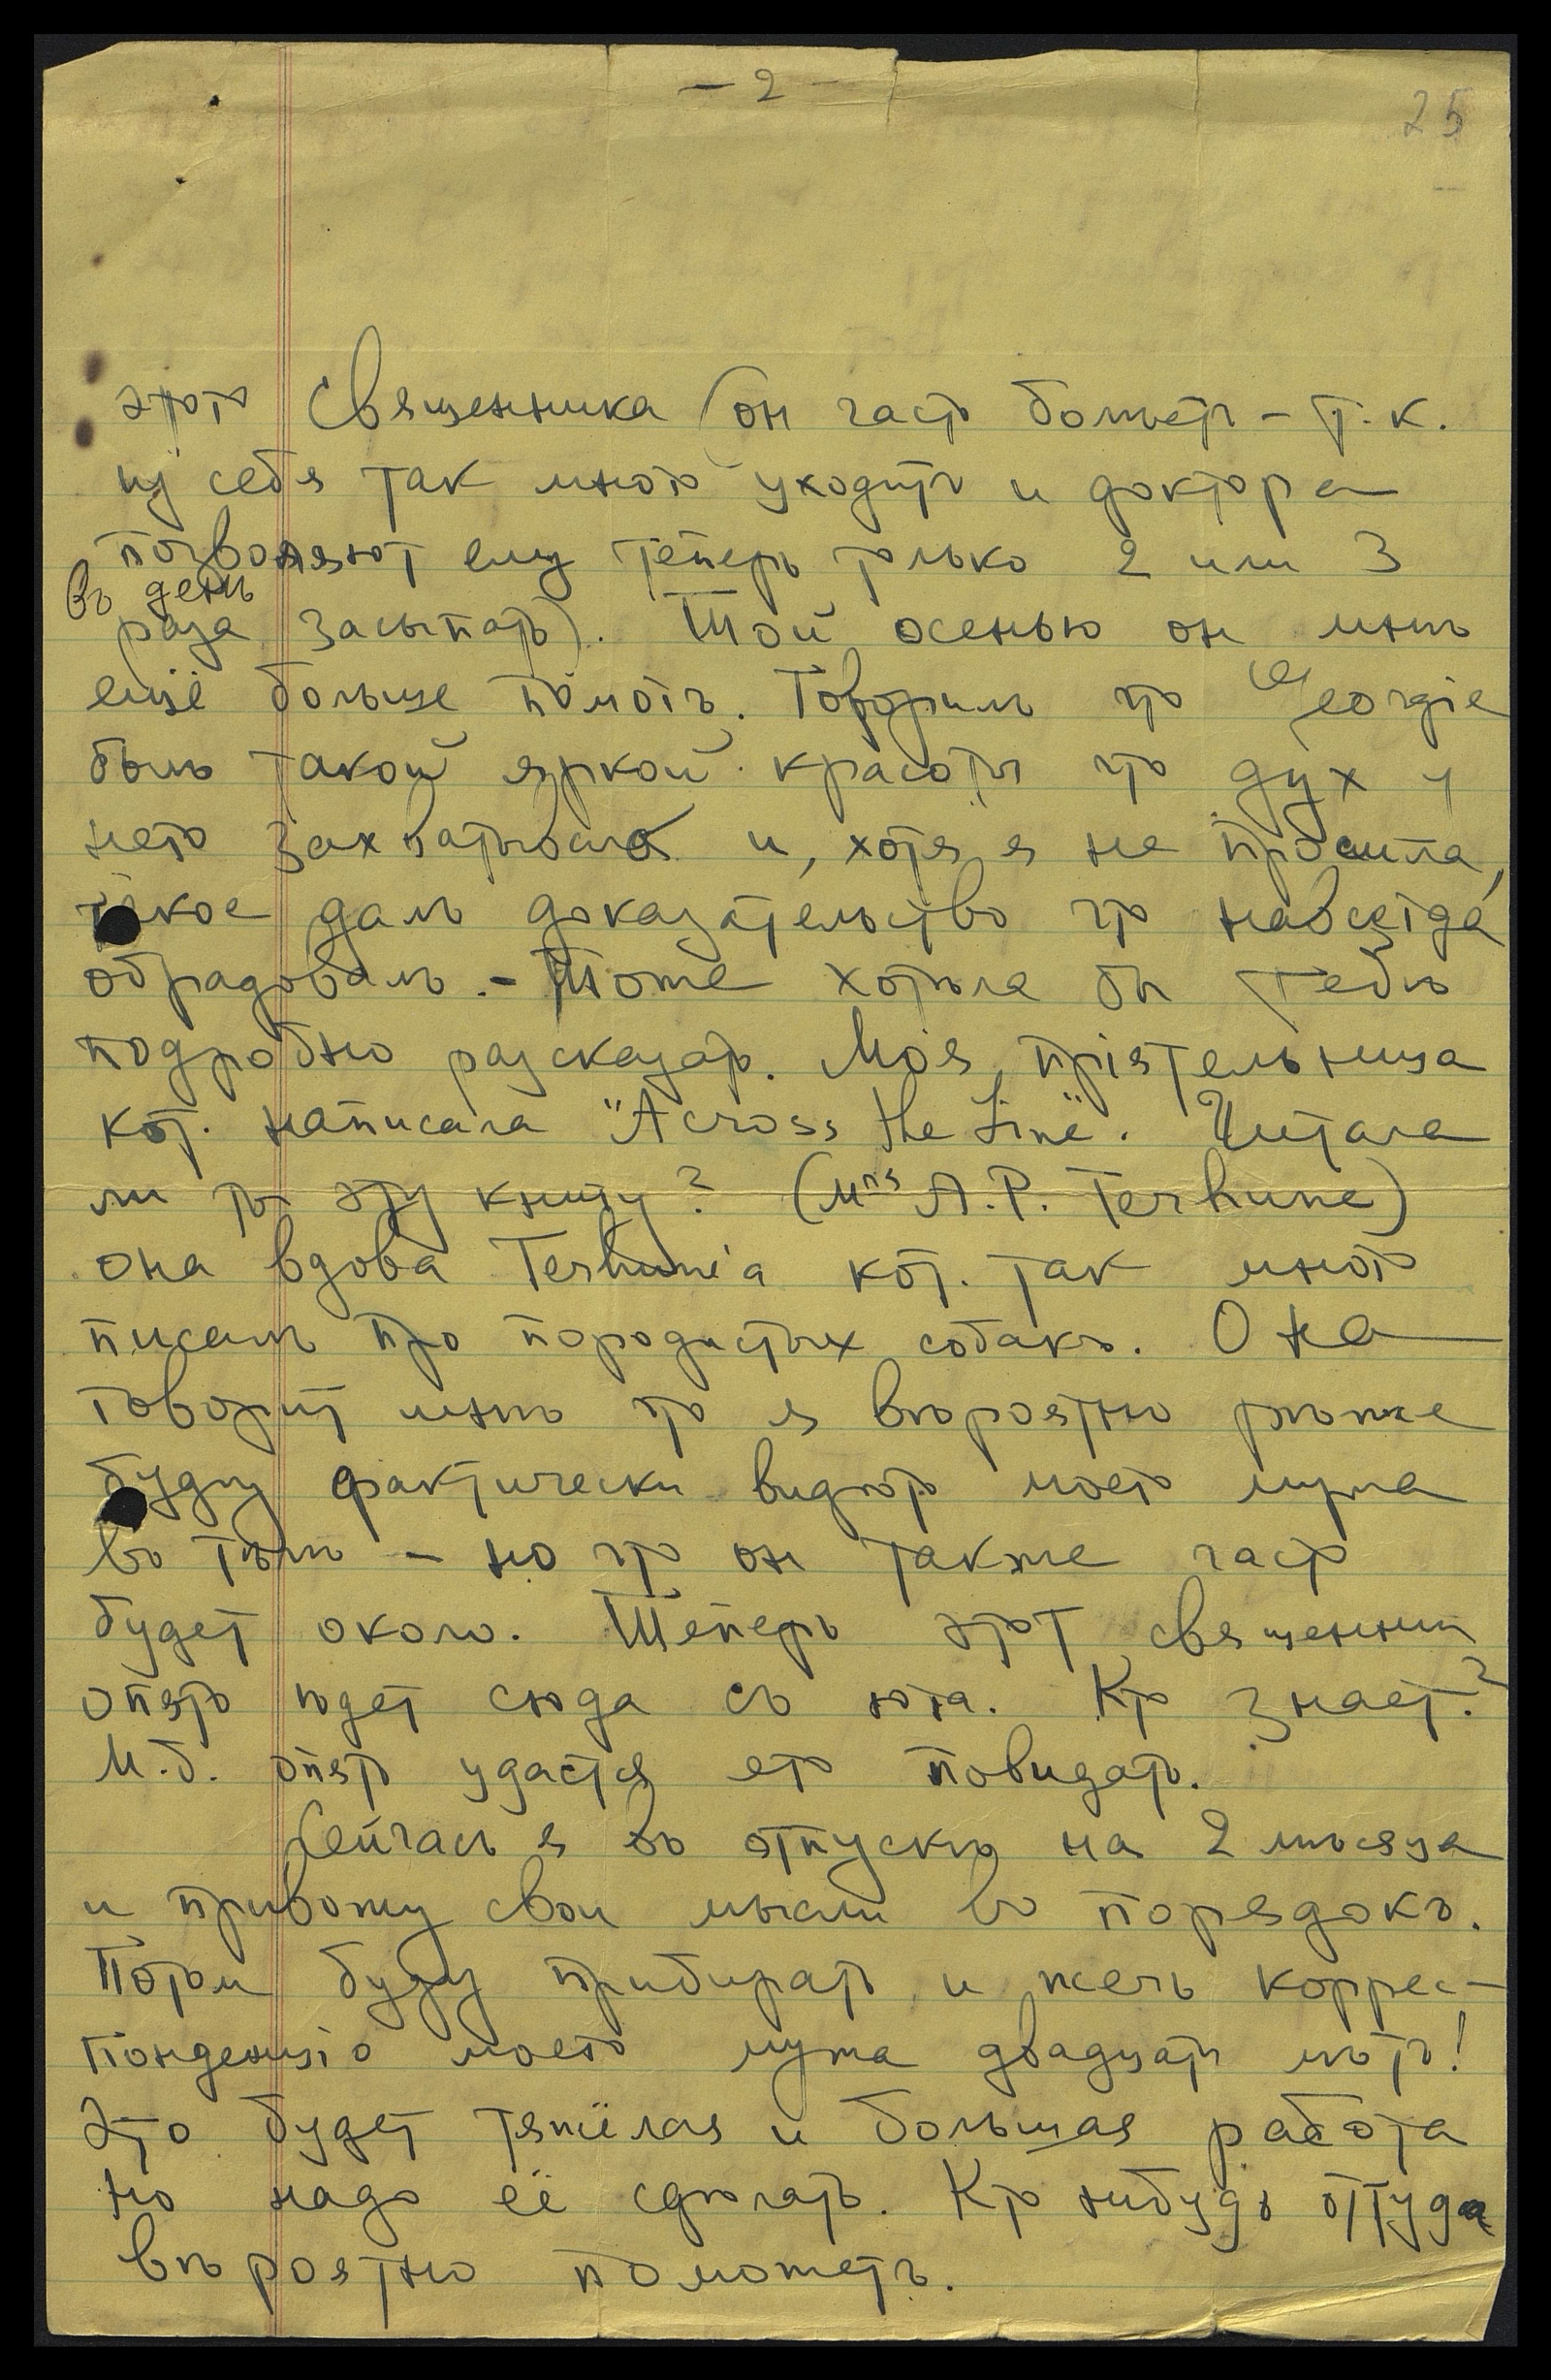 - 2 -
25
этого священника (он часто болѣетъ - т.к.
из себя так много уходитъ и доктора
позволяют ему теперь только 2 или 3
въ день
раза засыпать). Той осенью он мнѣ
ещё больше помогъ. Говорилъ что Georgie
былъ такой яркой красоты что дух у
него захватывало и, хотя я не просила,
такое далъ доказательство что навсегда
обрадовалъ. - Тоже хотѣла бы тебѣ
подробно разсказать. Моя пріятельница
кот. написала "Across the Line". Читала
ли ты эту книгу? (Mrs A.P. Terhune)
она вдова Terhune'a кот. так много
писалъ про породистых собакъ. Она
говорит мнѣ что я вѣроятно рѣже
буду фактически видѣть моего мужа
во тѣлѣ - но что он также часто
будет около. Теперь этот священник
опять ѣдет сюда съ юга. Кто знает?
М.б. опять удастся его повидать.
Сейчасъ я въ отпуску на 2 мѣсяца
и привожу свои мысли въ порядокъ.
Потом буду прибирать и жечь коррес-
понденцію моего мужа двадцати лѣтъ!
Это будет тяжёлая и большая работа
но надо её сдѣлать. Кто нибудь оттуда
вѣроятно поможетъ.